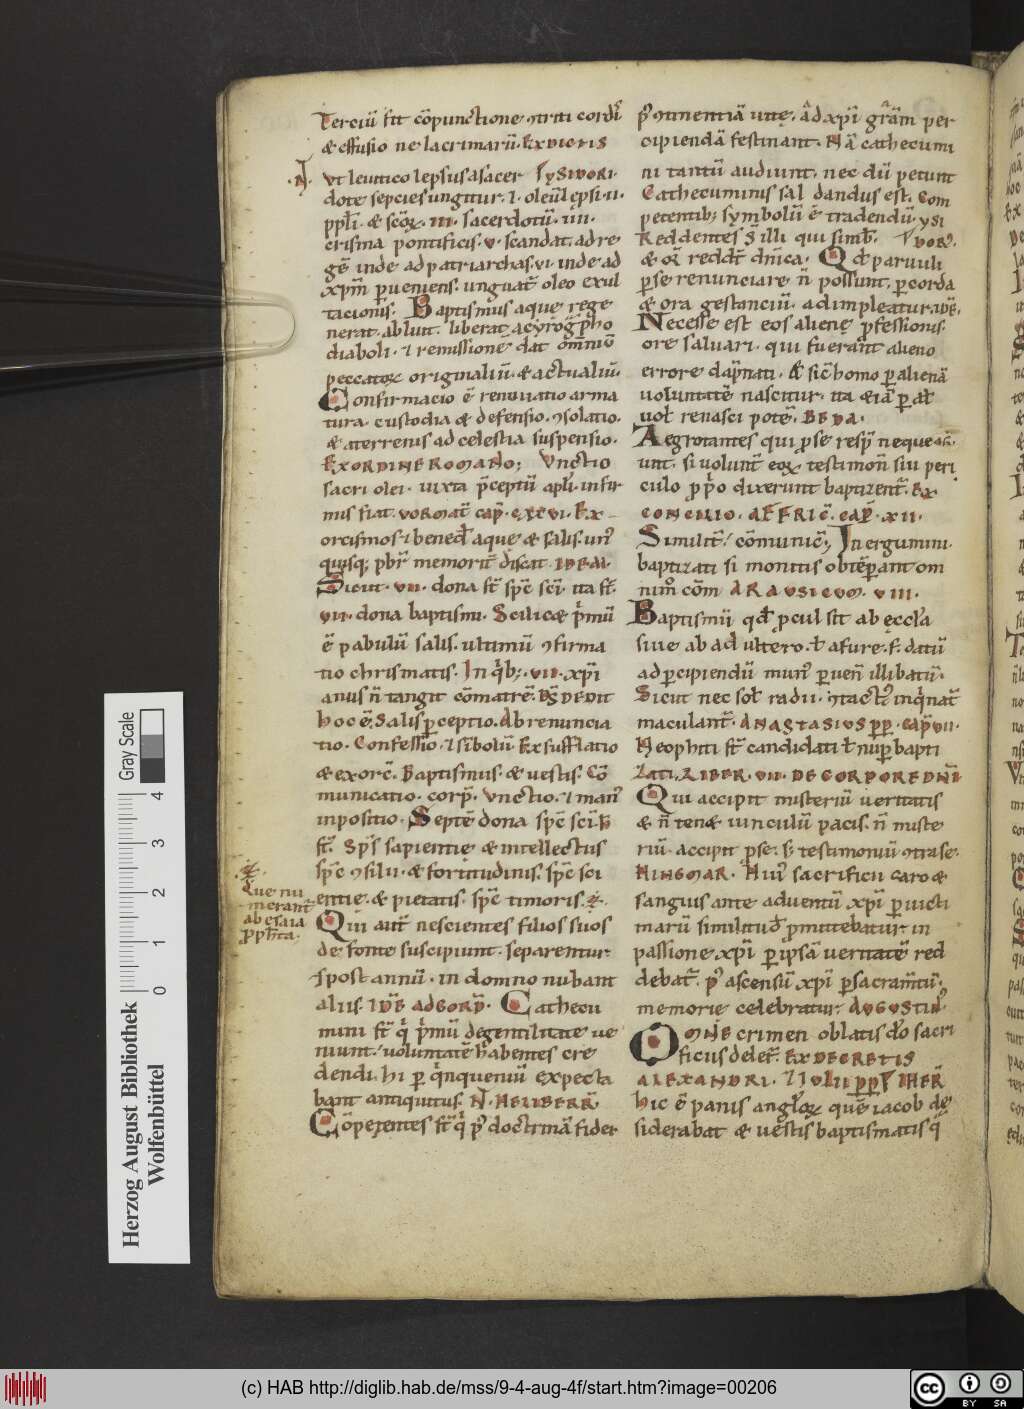 Terciū fit cōpunctione ꝯtriti cordis
& effusio ne lacrimarū. EX DICTIS
.N. Vt leuitico lepsus a sacer YSIDORI.
dote sepcies ungitur. I. oleū lepsi. II.
ppl̄i. & sc̄oꝝ. III. sacerdotū. IIII.
crisma pontificis. V. scandat. ad re
gē inde ad patriarchas. VI. inde ad
xp̄m ꝑueniens. unguat̄ oleo exul
tacionis. Baptismus aque rege
nerat. abluit. liberat
diaboli. & remissione dat om̄niū
peccatoꝝ originaliū. & actualiū.
Confirmacio ē renouatio arma
tura. custodia & defensio. ꝯsolatio.
& a terrenis ad celestia suspensio.
EX ORDINE ROMANO; Vnctio
sacri olei. iuxta p̄ceptū apl̄i. infir
mis fiat. VORMAT̄ CAP̄. CXXVI. Ex
orcismos. & bened̄ aque & salis. un̄
quisq; pbr̄ memorit̄ discat. IDE AL.
Sicut. VII. dona st̄ spc̄ sc̄i. ita st̄.
VII. dona baptismi. Scilic& p̄mū
ē pabulū salis. ultimū ꝯfirma
tio chrismatis. In qͥb;. VII. xp̄i
anus n̄ tangit cōmatrē.
hoc ē. Salis ꝑceptio. Abrenuncia
tio. Confessio. & sībolū. Exsufflatio
& exorc̄. Baptismus. & uestis. Cō
municatio. corp̄. Vnctio. & man᷒
inpositio. Septē dona spc̄ sc̄i. h̄
st̄. Sp̄s sapientię & intellectus
spc̄ ꝯsilii. & fortitudinis. spc̄ sci
entie. & pietatis. spc̄ timoris.
Que nu
merant̄
ab esaia
ꝓph̄ta.
Qui aut̄ nescientes filios suos
de fonte suscipiunt. separentur
& post annū. in domno nubant
aliis. Cathecu
mini st̄ qͥ p̄mū de gentilitate ue
niunt. uoluntatē habentes cre
dendi. hi ꝑ qͥnqueniū expecta
bant antiquitus.
Cōpetentes st̄ qͥ pꝰ doctrinā fidei
pꝰ ꝯtinentiā uitę. ad xp̄i gr̄am per
cipiendā festinant. Nā cathecumi
ni tantū audiunt. nec dū petunt
Cathecuminis sal dandus est. Com
petentib; symbolū ē tradendū. YSI
Reddentes s̄ illi qui simb̄. DOR᷒.
& or̄ reddt̄ dn̄ica. Qd̄ paruuli
ꝑ se renunciare n̄ possunt. ꝑ corda
& ora gestanciū. adimpleatur.
Necesse est eos alienę ꝓfessionis.
ore saluari. qui fuerant alieno
errore dāpnati. & sic homo ꝑ alienā
uoluntatē nascitur. ita & iā ꝑ al̄
uol̄ renasci potē. BEDA.
Aegrotantes qui ꝓ se resp̄ nequeūt.
unt. si uolunt̄ eoꝝ testimon̄ siu peri
culo ꝓprio dixerunt baptizent̄. EX
CONCILIO. AFFRIC̄. CAP̄. XII.
Similit̄. cōmunic̄; In ergumini.
baptizati si monitis obtēperant om
nim̊ cōm̄ ARAUSICUM. VIII.
Baptismū qd̄ ꝓcul sit ab ęccl̄a
siue ab adultero. ł a fure. f. datū
ad ꝑcipiendū mun᷒ ꝑuen̄ illibatū.
Sicut nec sol̄ radii. ꝯtact᷒ inqͥnat̄
maculant̄. ANASTASIUS PP. CAP̄ VII.
Neophiti st̄ candidati ł nuper bapti
zati. LIBER. VII. DE CORPORE DN̄I
Qui accipit misteriū ueritatis
& n̄ ten& iunculū pacis. n̄ miste
riū. accipit ꝑ se. s; testimoniū ꝯtra se.
HINGMAR. Huī sacrificii caro &
sanguis ante aduentū xp̄i ꝑ uicti
marū similitud̄ ꝓmittebatur. in
passione xp̄i ꝑ ipsā ueritatē red
debat̄. pꝰ ascensū xp̄i ꝑ sacram̄tū.
memorie celebratur. AUGUSTIN᷒
OMNE crimen oblatis dō sacri
ficiis delet̄. EX DECRETIS
ALEXANDRI. & IULII PP.
hic ē panis angl̄oꝝ quē iacob de
siderabat & uestis baptismatis qͥ
Herzog August Bibliothek
Wolfenbüttel
0 1 2 3 4
Gray Scale
(c) HAB http://diglib.hab.de/mss/9-4-aug-4f/start.htm?image=00206
cc BY SA